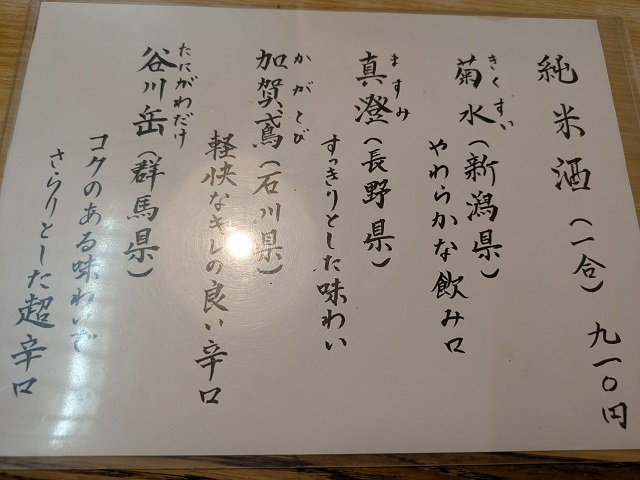 純米酒（一合）九一〇円
きくすい
菊水（新潟県）
やわらかな飲み口
ますみ
真澄（長野県）
すっきりとした味わい
かがとび
加賀鳶（石川県）
軽快なキレの良い辛口
たにがわだけ
谷川岳（群馬県）
コクのある味わいで
さらりとした超辛口